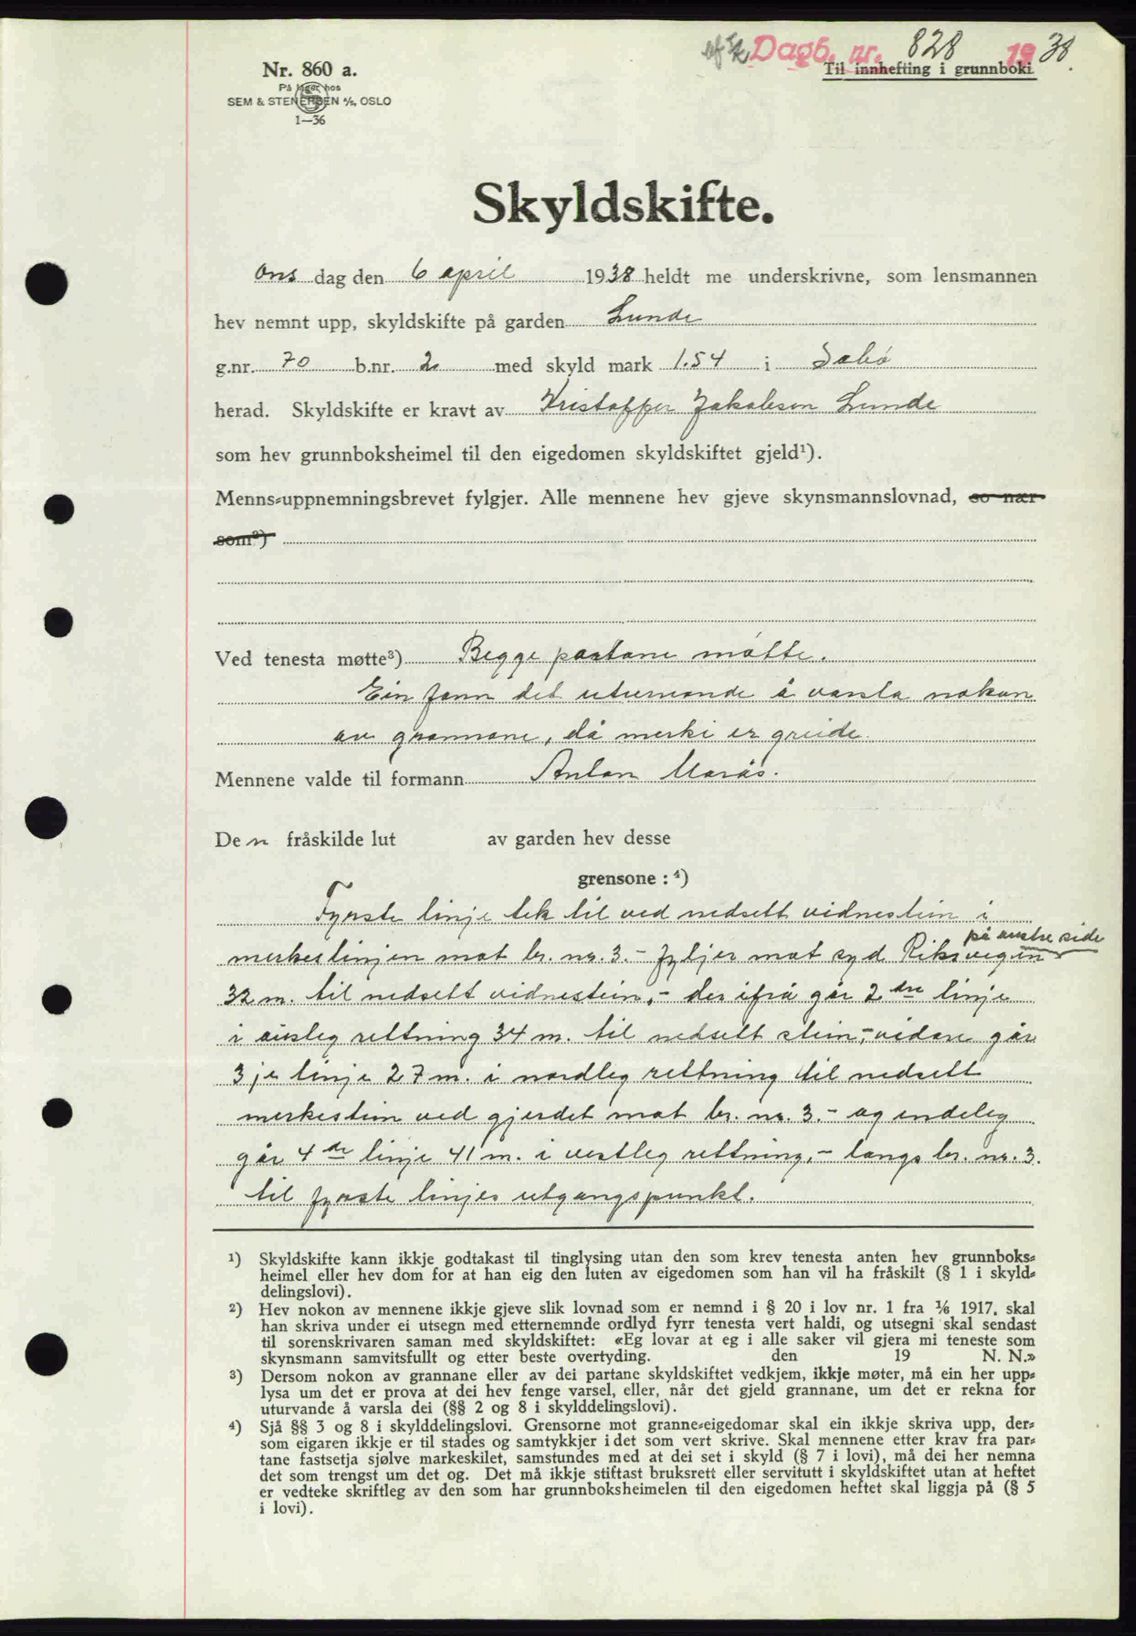 Dagb. nr. 828 1938.
Til innhefting i grunnboki
Nr. 860 a.
På lager hos
SEM & STENERSEN A/S, OSLO
1—36
Skyldskifte.
Ons dag den 6 april 1938 heldt me underskrivne, som lensmannen
hev nemnt upp, skyldskifte på garden Lunde
g.nr. 70 b.nr. 2 med skyld mark 1.54 i Sæbø
herad. Skyldskifte er kravt av Kristoffer Jakobsen Lunde
som hev grunnboksheimel til den eigedomen skyldskiftet gjeld¹).
Menns-uppnemningsbrevet fylgjer. Alle mennene hev gjeve skynsmannslovnad, so nær
som²)
Ved tenesta møtte³) Begge partane møtte.
Ein fann det uturvande å varsla nokon
av grannane, då merki er greide.
Mennene valde til formann Anton Marås.
Den fråskilde lut av garden hev desse
grensone : ⁴)
Fyrste linje tek til ved nedsett vidnestein i
på austre side
merkeslinjen mot br. nr. 3. - fyljer mot syd Riksvegen
32 m. til nedsett vidnestein, - der ifrå går 2 dre linje
i austleg rettning 34 m. til nedsett stein, - vidare går
3je linje 27 m. i nordleg rettning til nedsett
merkestein ved gjerdet mot br. nr. 3. - og endeleg
går 4 de linje 41 m. i vestleg rettning, - langs br. nr. 3.
til fyrste linjes utgangspunkt.
¹) Skyldskifte kann ikkje godtakast til tinglysing utan den som krev tenesta anten hev grunnboks-
heimel eller hev dom for at han eig den luten av eigedomen som han vil ha fråskilt (§ 1 i skyld-
delingslovi).
²) Hev nokon av mennene ikkje gjeve slik lovnad som er nemnd i § 20 i lov nr. 1 fra 1/6 1917, skal
han skriva under ei utsegn med etternemnde ordlyd fyrr tenesta vert haldi, og utsegni skal sendast
til sorenskrivaren saman med skyldskiftet: «Eg lovar at eg i alle saker vil gjera mi teneste som
skynsmann samvitsfullt og etter beste overtyding. den 19 N. N.»
³) Dersom nokon av grannane eller av dei partane skyldskiftet vedkjem, ikkje møter, må ein her upp-
lysa um det er prova at dei hev fenge varsel, eller, når det gjeld grannane, um det er rekna for
uturvande å varsla dei (§§ 2 og 8 i skylddelingslovi).
⁴) Sjå §§ 3 og 8 i skylddelingslovi. Grensorne mot granne-eigedomar skal ein ikkje skriva upp, der-
som eigaren ikkje er til stades og samtykkjer i det som vert skrive. Skal mennene etter krav fra par-
tane fastsetja sjølve markeskilet, samstundes med at dei set i skyld (§ 7 i lovi), må dei her nemna
det som trengst um det og. Det må ikkje stiftast bruksrett eller servitutt i skyldskiftet utan at heftet
er vedteke skriftleg av den som har grunnboksheimelen til den eigedomen heftet skal liggja på (§ 5
i lovi).